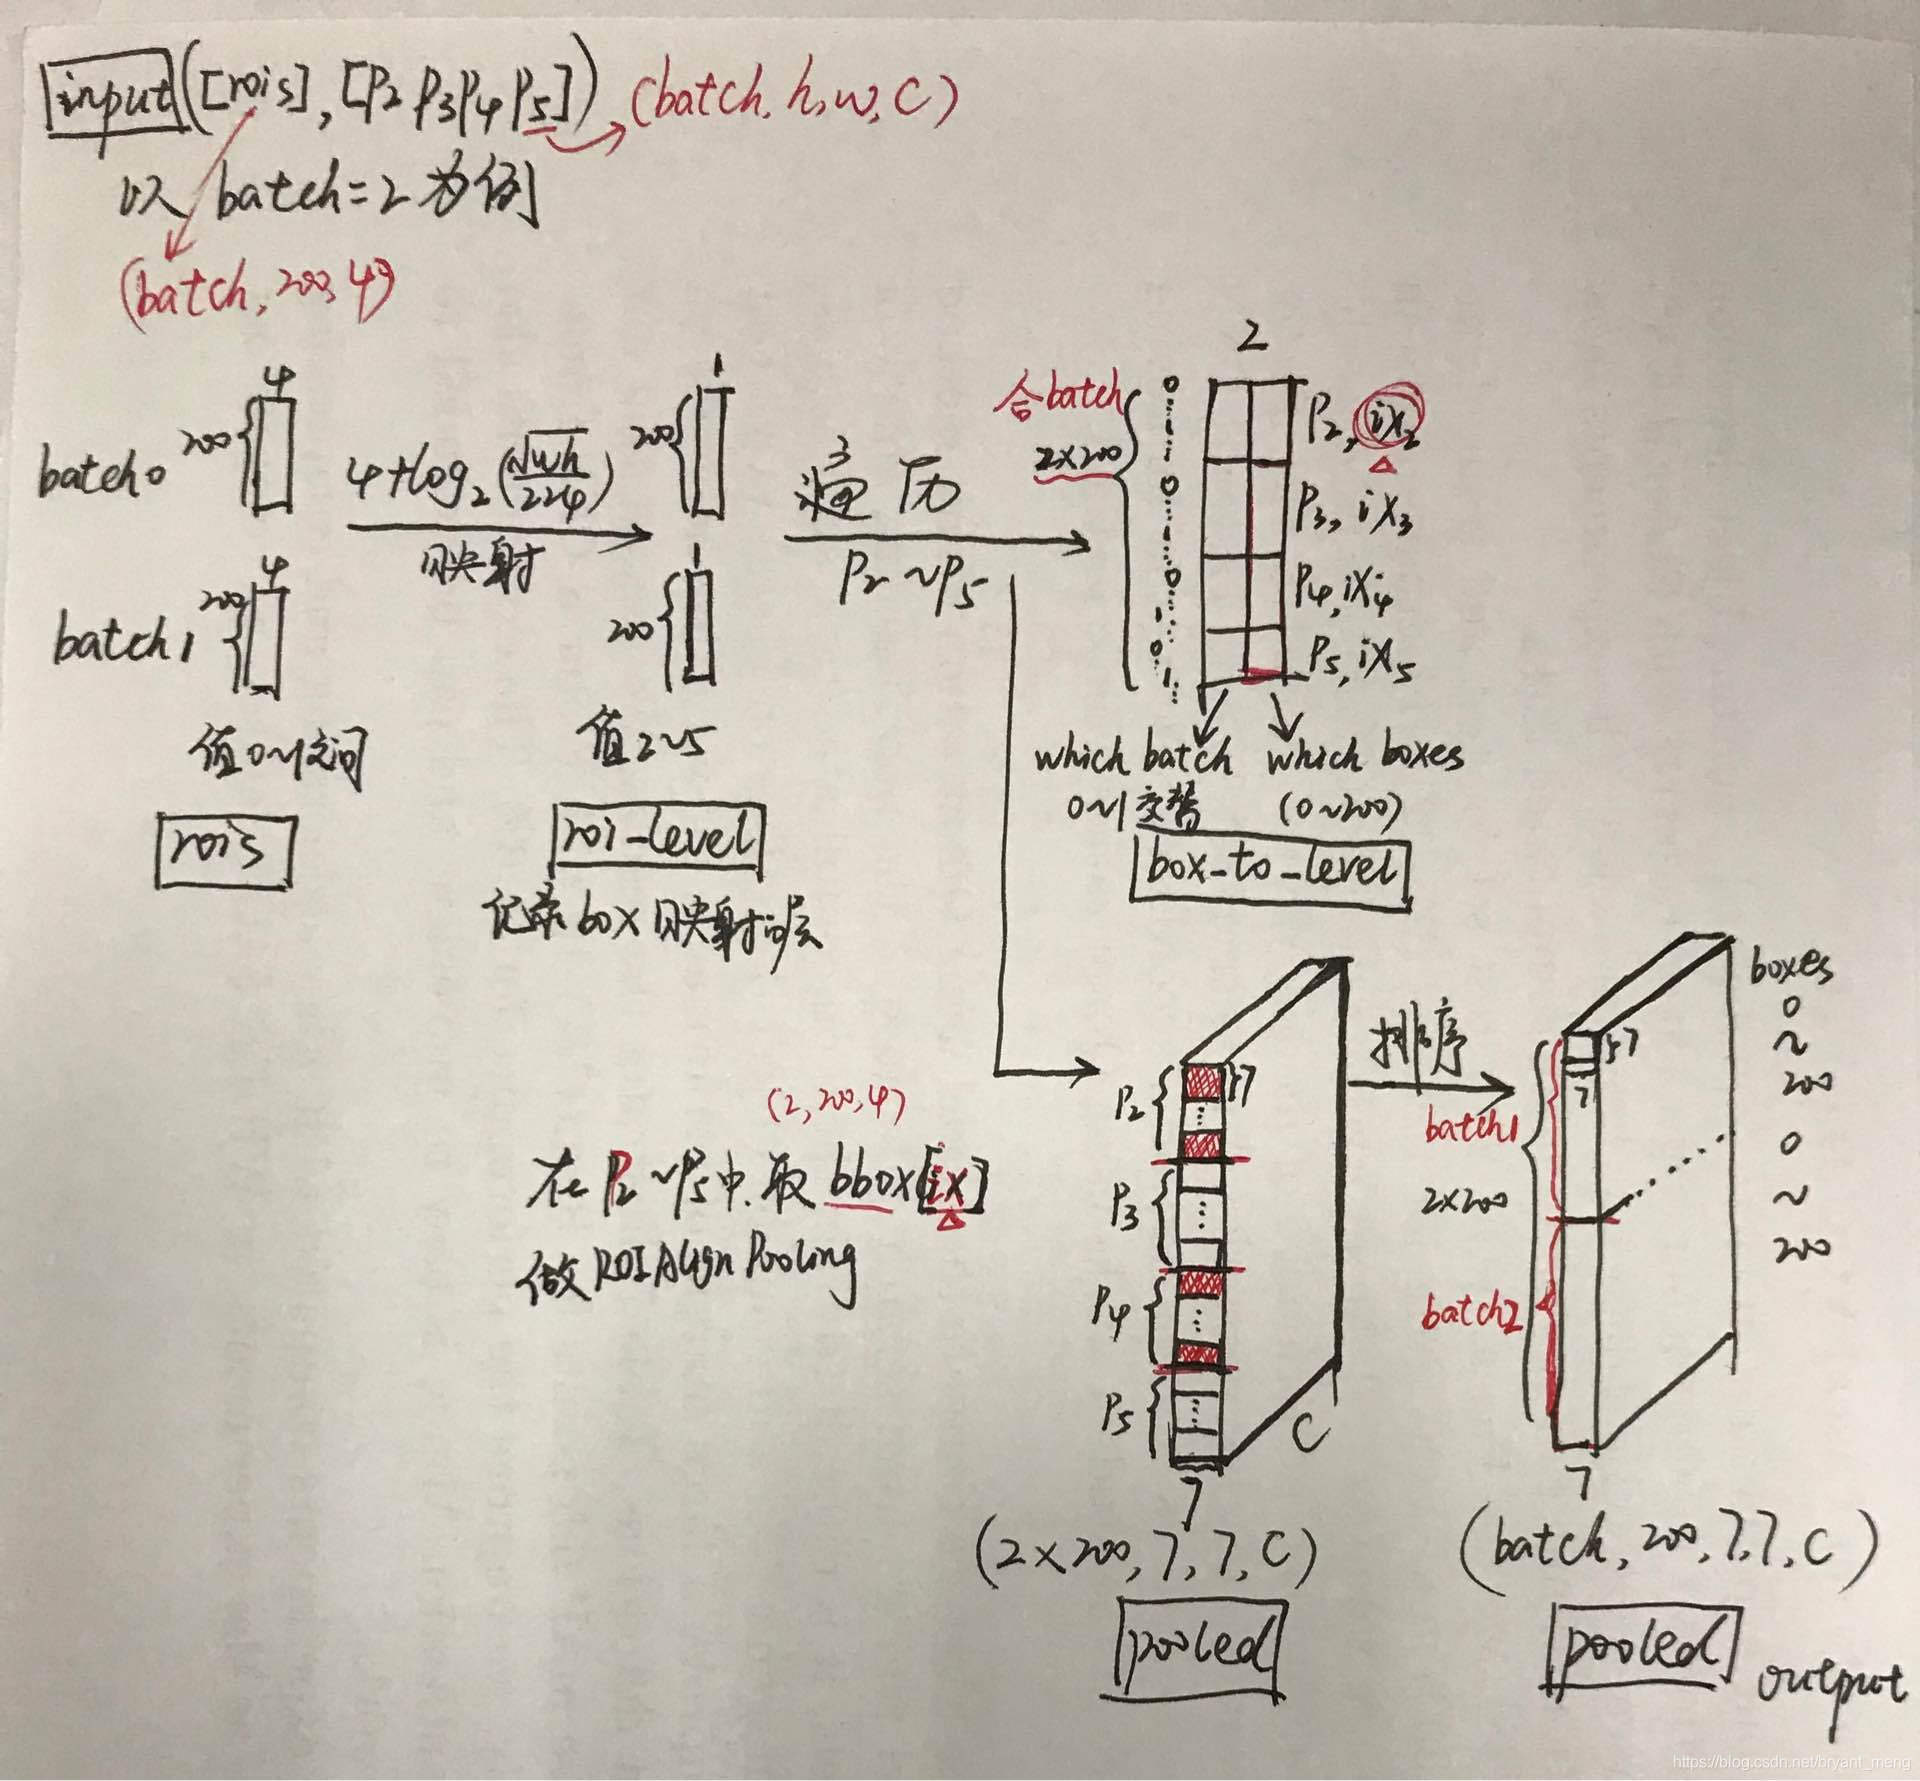 input([rois],[P2 P3 P4 P5]) (batch, h, w, C)
以 batch=2 为例
(batch, 200, 4)
batch0 200 4
4+log₂(√wh/224)
映射
200 1
batch1 200 4
200 1
值0~1之间
值2~5
rois
roi-level
记录box映射的层
遍历
P2~P5
2
合batch
2×200
0
1
0
1
0
1
0
1
P2, ix2
P3, ix3
P4, ix4
P5, ix5
which batch which boxes
0~1交替 (0~200)
box-to-level
(2, 200, 4)
在P2~P5中取 bbox[ix]
做ROIAlign Pooling
P2
P3
P4
P5
7
7
C
(2×200, 7, 7, C)
pooled
排序
batch1
2×200
batch2
7
7
7
boxes
0
~
200
0
~
200
(batch, 200, 7, 7, C)
pooled output
https://blog.csdn.net/bryant_meng